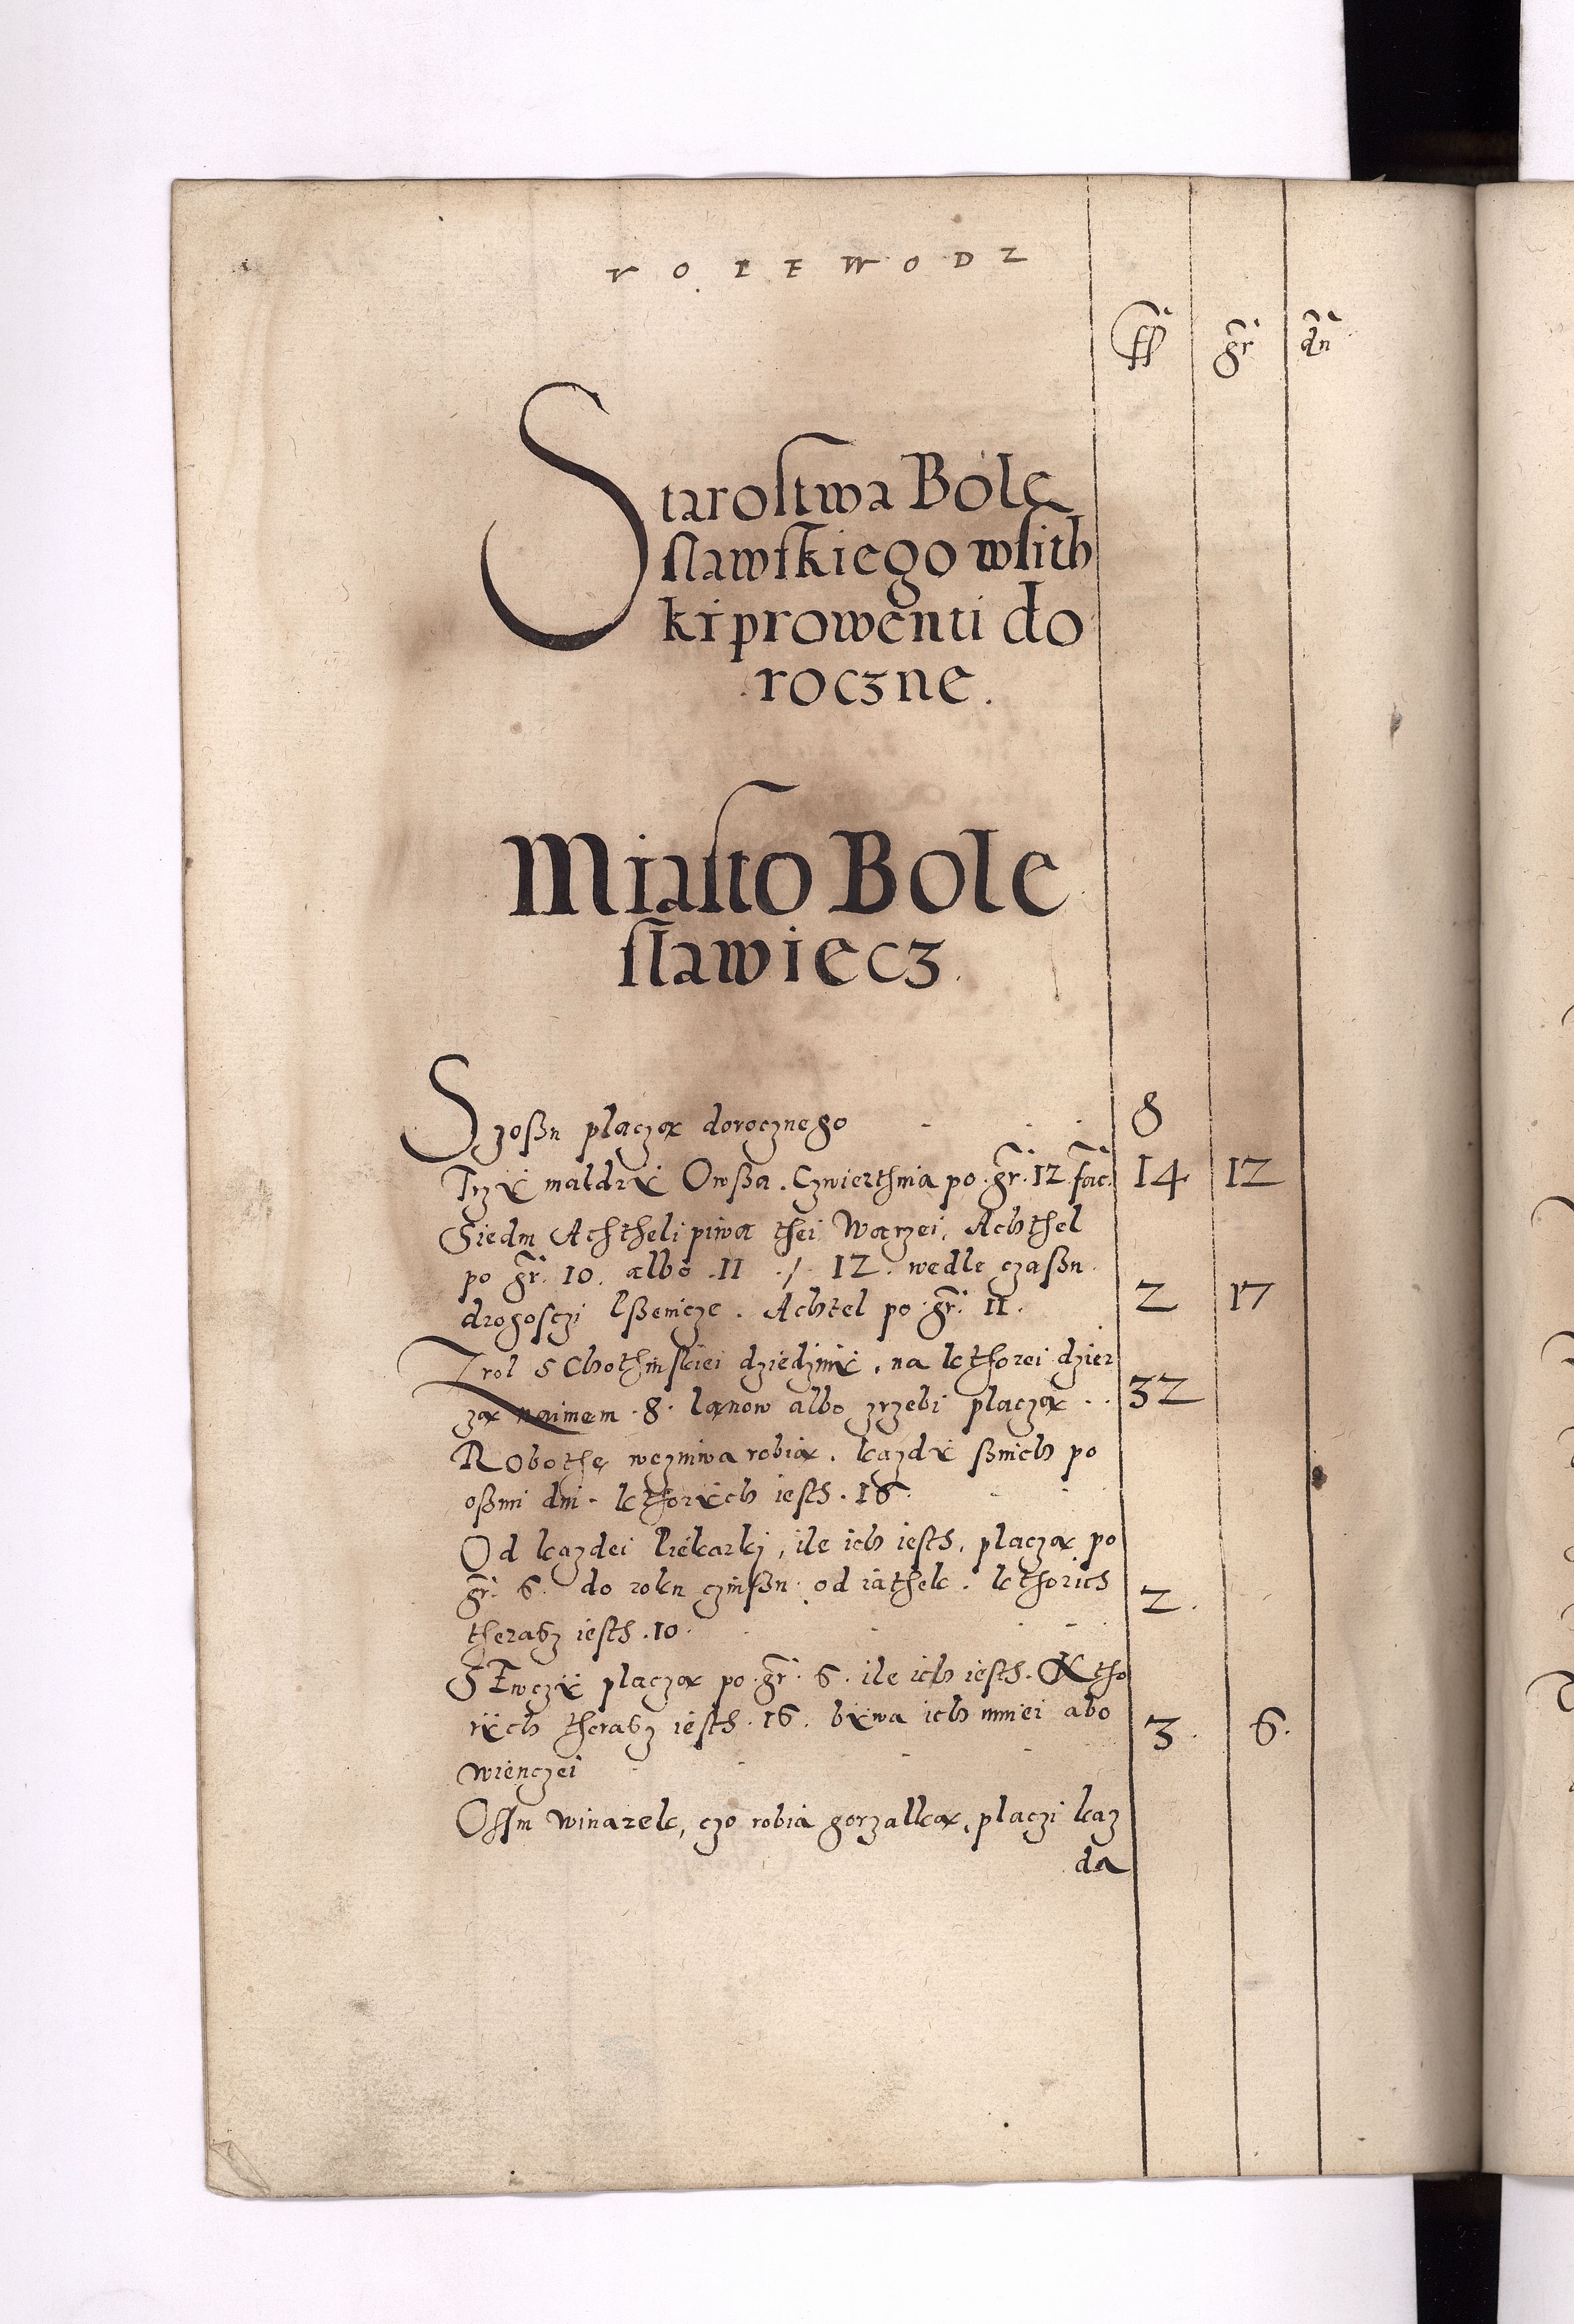 W O I E W O D Z
ff gr dn
Starostwa Bole
slawskiego wsith
ki prowenti do
roczne.
Miasto Bole
sławiecz.
Szoßu placzą dorocznego 8
Trzÿ małdrÿ Owßa. Czwierthnia po. gr. 12. fac. 14 12
Siedm Achtheli piwa thei Warzei, Achthel
po gr. 10. albo .11 ./. 12. wedle czaßu
drogosczi Pßenicze. Achtel po gr. 11. 2 17
Z rol s Chothinskiei dziedzinÿ, na kthorei dzier
zą naimem .8. lanow albo zrzebi placzą .. 32
Robothę wezniwa robią. kazdÿ ßnich po
oßmi dni. kthorÿch iesth .16.
Od kazdei Piekarki, ile ich iesth, placzą po
gr. 6. do roku czinßu od iathek. kthorich 2.
theraßz iesth .10.
SEwczÿ placzą po. gr. 6. ile ich iesth. Ktho
rÿch theraßz iesth .16. bÿwa ich mniei abo 3. 6.
wienczei
Ossm winarek, czo robia gorzałką, placzi kaz
da